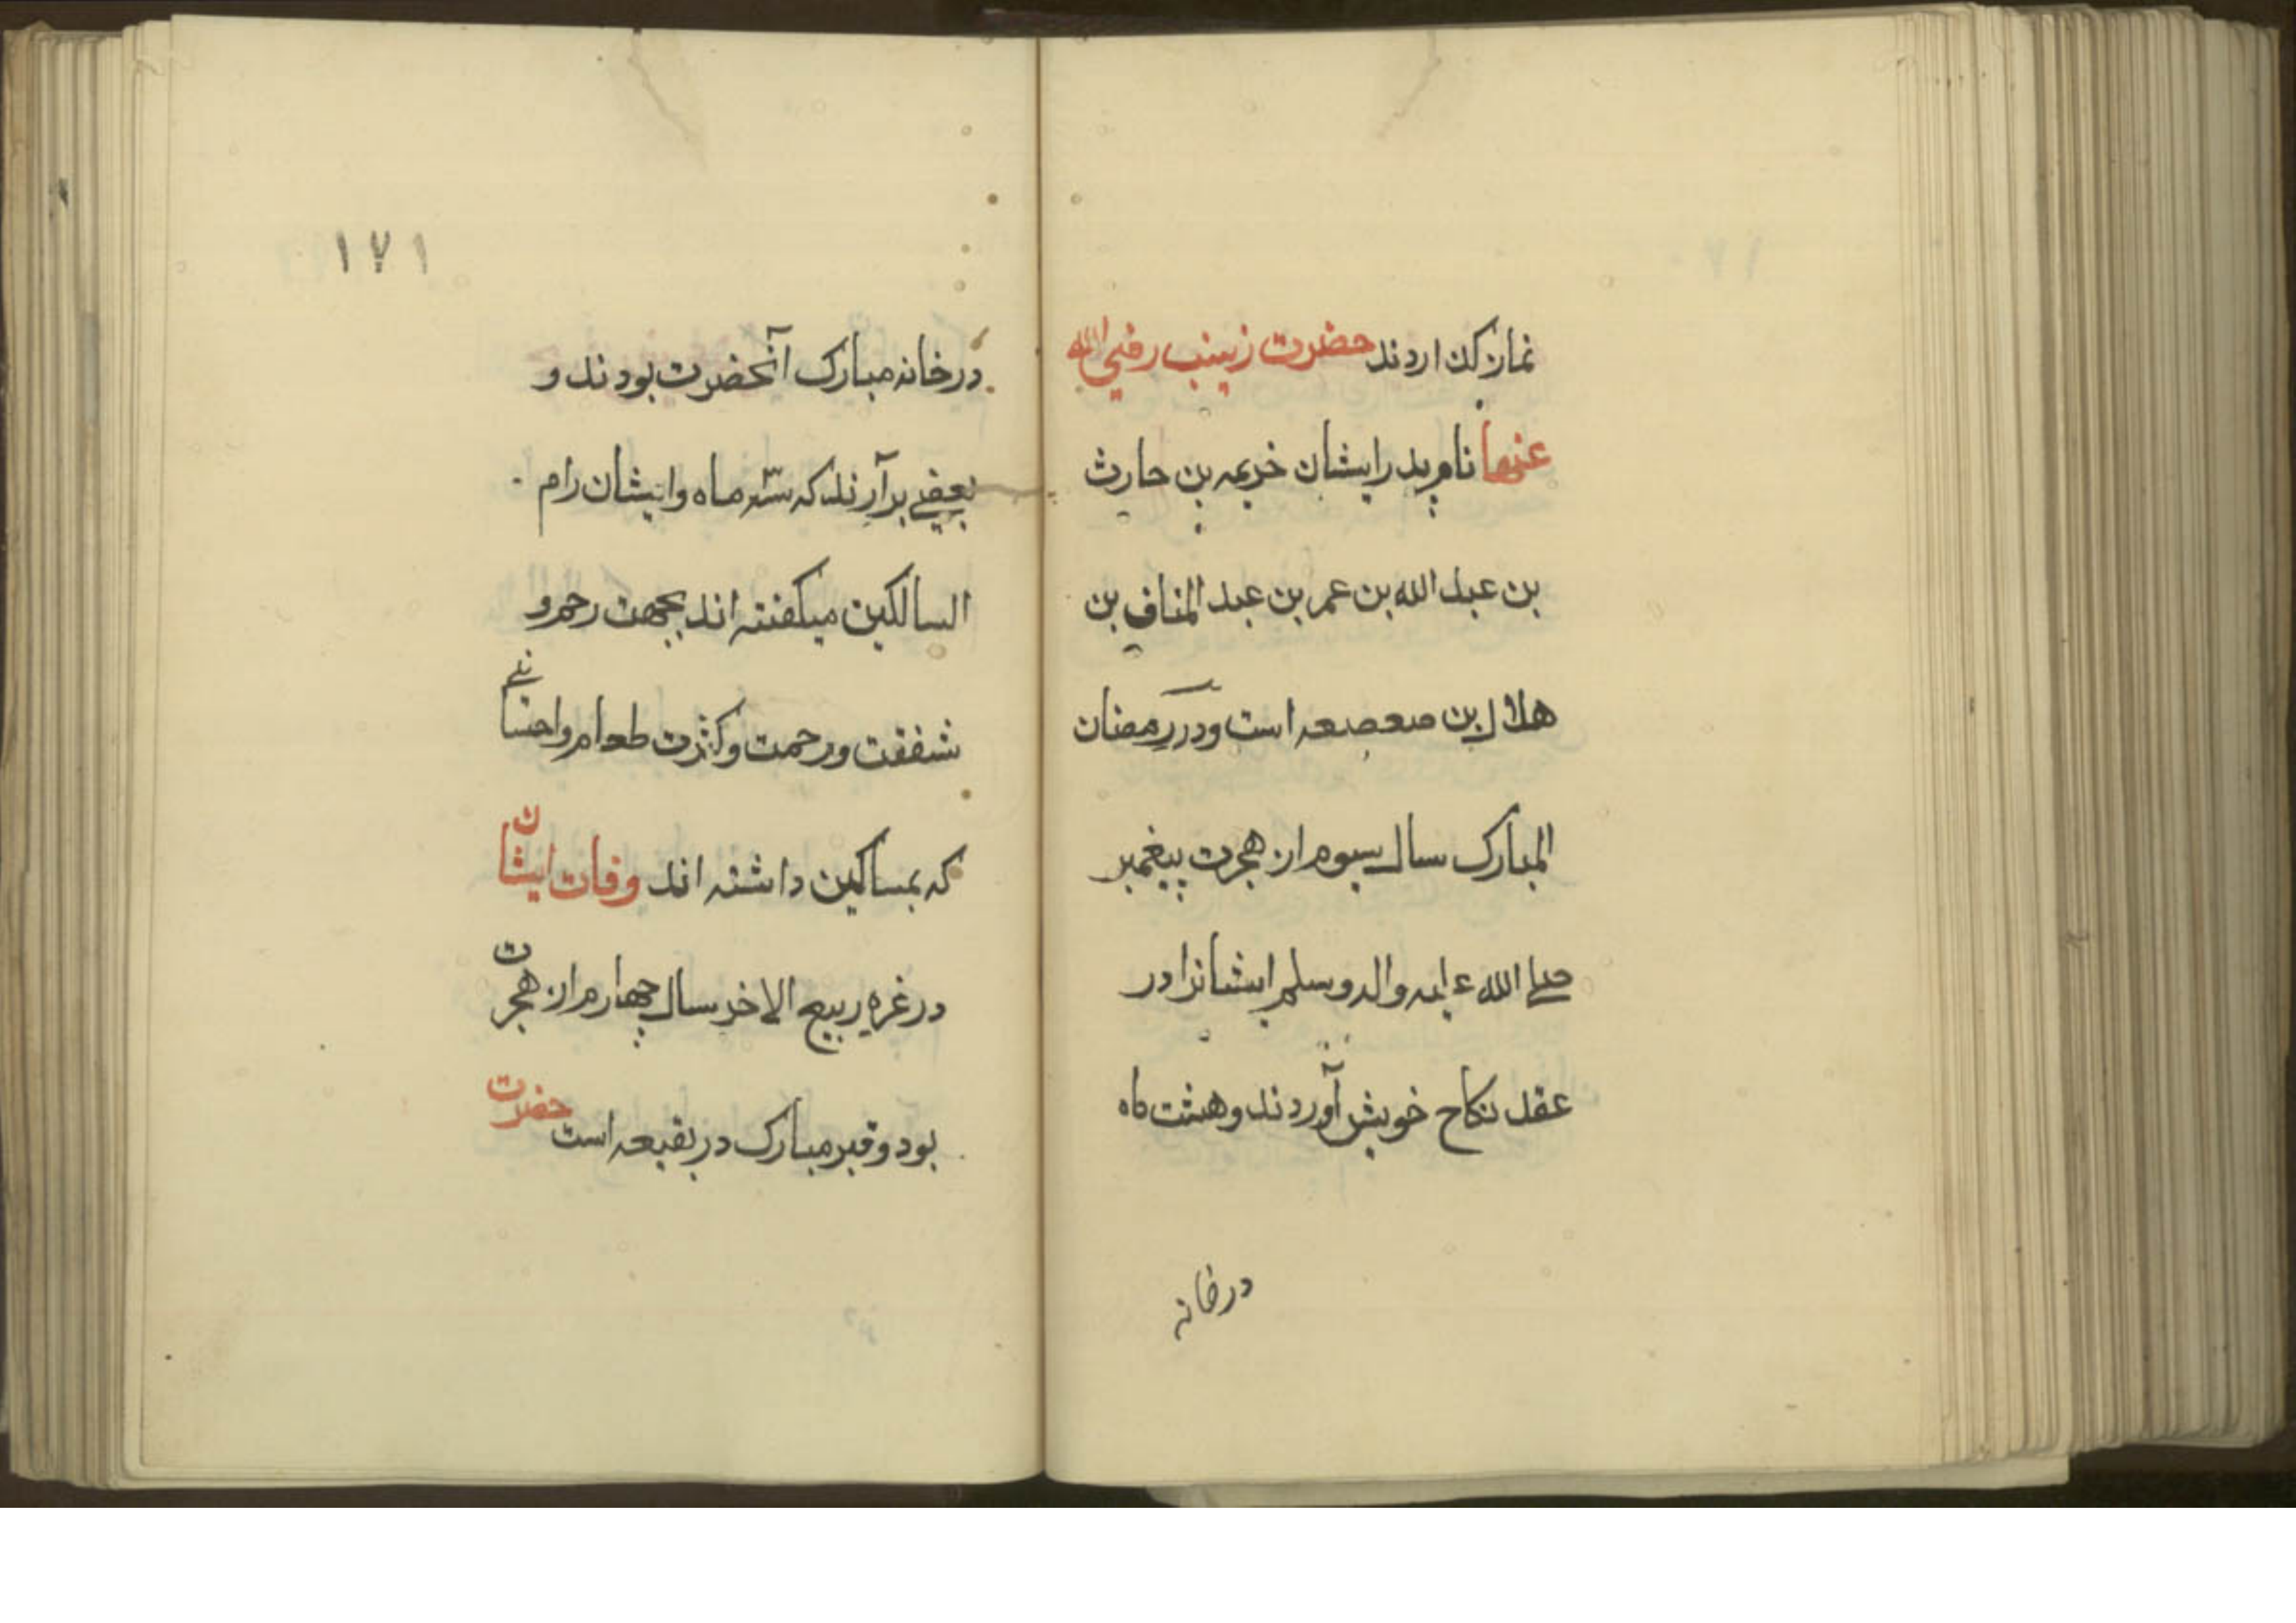 نماز کذاردند حضرت زینب رضی الله
عنها نام پدر ایشان خزیمه بن حارث
بن عبد الله بن عمر بن عبد المناف بن
هلال بن صعصعه است ودر رمضان
المبارک سال سیوم از هجرت پیغمبر
صلی الله علیه واله وسلم ایشانرا در
عقد نکاح خویش آوردند وهشت ماه
در خانه
۱۷۱
در خانه مبارک آنحضرت بودند و
بعضی برآرند که سه ماه وایشان رام
السالکین میکفته اند بجهت رحم و
شفقت ورحمت وکثرت طعام واحسانی
که بمساکین داشته اند وفات ایشان
در غره ربیع الاخر سال چهارم از هجرت
بود وقبر مبارک در بقیعه است حضرت